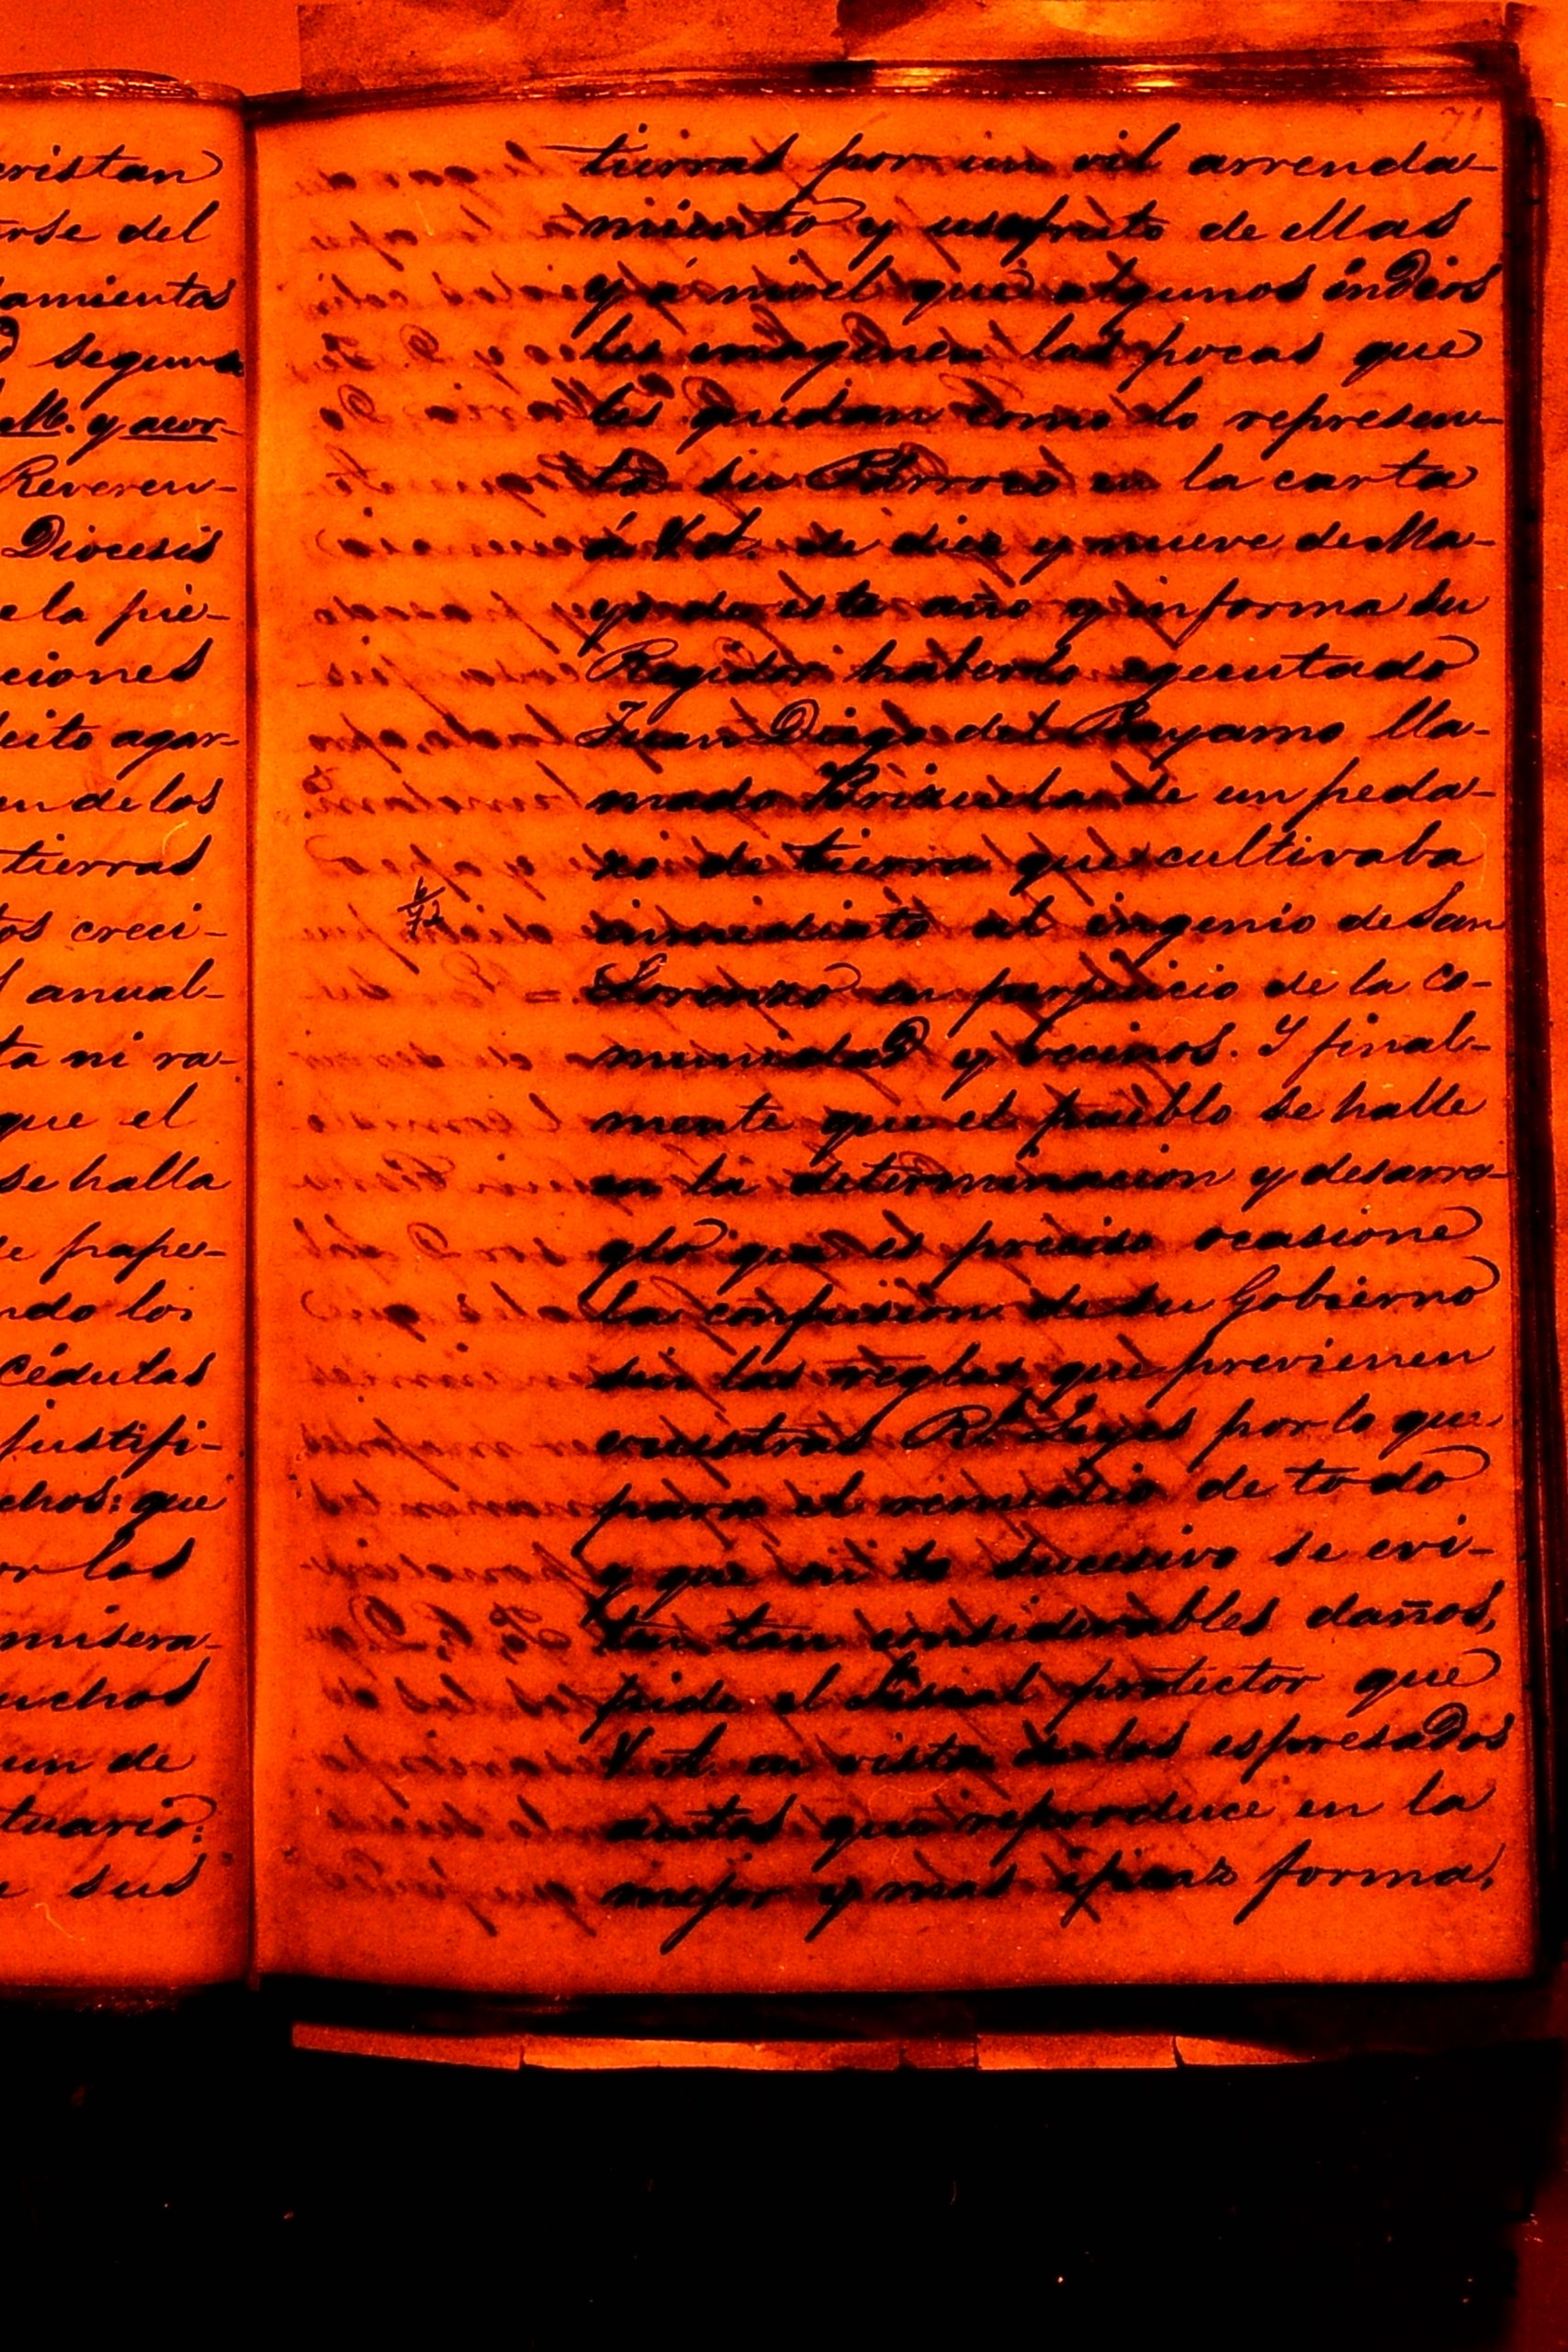 cristan
rse del
amientos
segun
M. y acor-
Reveren-
Diocesis
e la pie-
ciones
leito agar-
en de los
tierras
tos creci-
anual-
ta ni ra-
que el
se halla
de pape-
ndo los
cédulas
justifi-
chos: que
or los
misera-
uchos
un de
tuario:
sus
71
tierras por un vil arrenda-
miento y usofruto de ellas
y á nivel que algunos indios
les enagenen las pocas que
les quedan como lo represen-
ta su Párroco en la carta
á V.A. de diez y nueve de Ma-
yo de este año y informa su
Regidor haberlo egecutado
Juan Diego del Bayamo lla-
mado Brizuela de un peda-
zo de tierra que cultivaba
inmediato al ingenio de San
Lorenzo en perjuicio de la co-
munidad y vecinos. Y final-
mente que el pueblo se halle
en la determinacion y desarre-
glo que es preciso ocasione
la confusion de su Gobierno
sin las reglas que previenen
vuestras Rs. Leyes por lo que
para el remedio de todo
y que en lo sucesivo se evi-
ten tan considerables daños,
pide el Fiscal protector que
V.A. en vista de los espresados
autos que reproduce en la
mejor y mas eficaz forma,